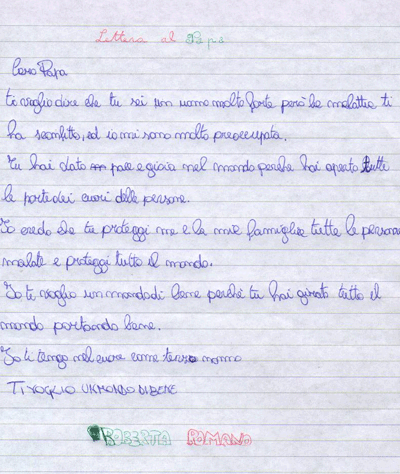 Lettera al Papa
Caro Papa
ti voglio dire che tu sei un uomo molto forte però la malattia ti
ha sconfitto, ed io mi sono molto preoccupata.
Tu hai dato pace e gioia nel mondo perché hai aperto tutte
le porte dei cuori delle persone.
Io credo che tu proteggi me e la mia famiglia tutte le persone
malate e proteggi tutto il mondo.
Io ti voglio un mondo di bene perché tu hai girato tutto il
mondo portando bene.
Io ti tengo nel cuore come terzo nonno
TI VOGLIO UN MONDO DI BENE
ROBERTA ROMANO